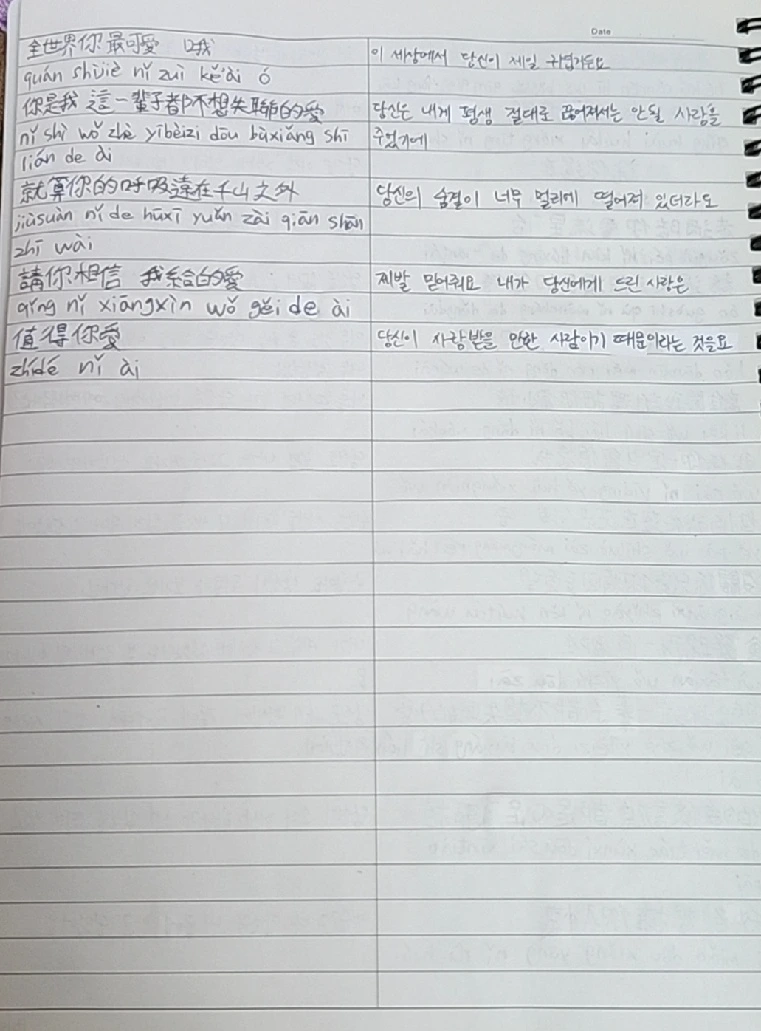 Date
全世界你最可愛 哦
이 세상에서 당신이 제일 귀엽거든요
quán shìjiè nǐ zuì kě'ài ó
你是我 這一輩子都不想失聯的愛
당신은 내게 평생 절대로 끊어져서는 안될 사랑을
nǐ shì wǒ zhè yíbèizi dōu bùxiǎng shī
주었기에
lián de ài
就算你的呼吸遠在千山之外
당신의 숨결이 너무 멀리에 떨어져 있더라도
jiùsuàn nǐ de hūxī yuǎn zài qiān shān
zhī wài
請你相信 我給的愛
제발 믿어줘요 내가 당신에게 드린 사랑은
qǐng nǐ xiāngxìn wǒ gěi de ài
值得你愛
당신이 사랑받을 만한 사람이기 때문이라는 것을요
zhídé nǐ ài